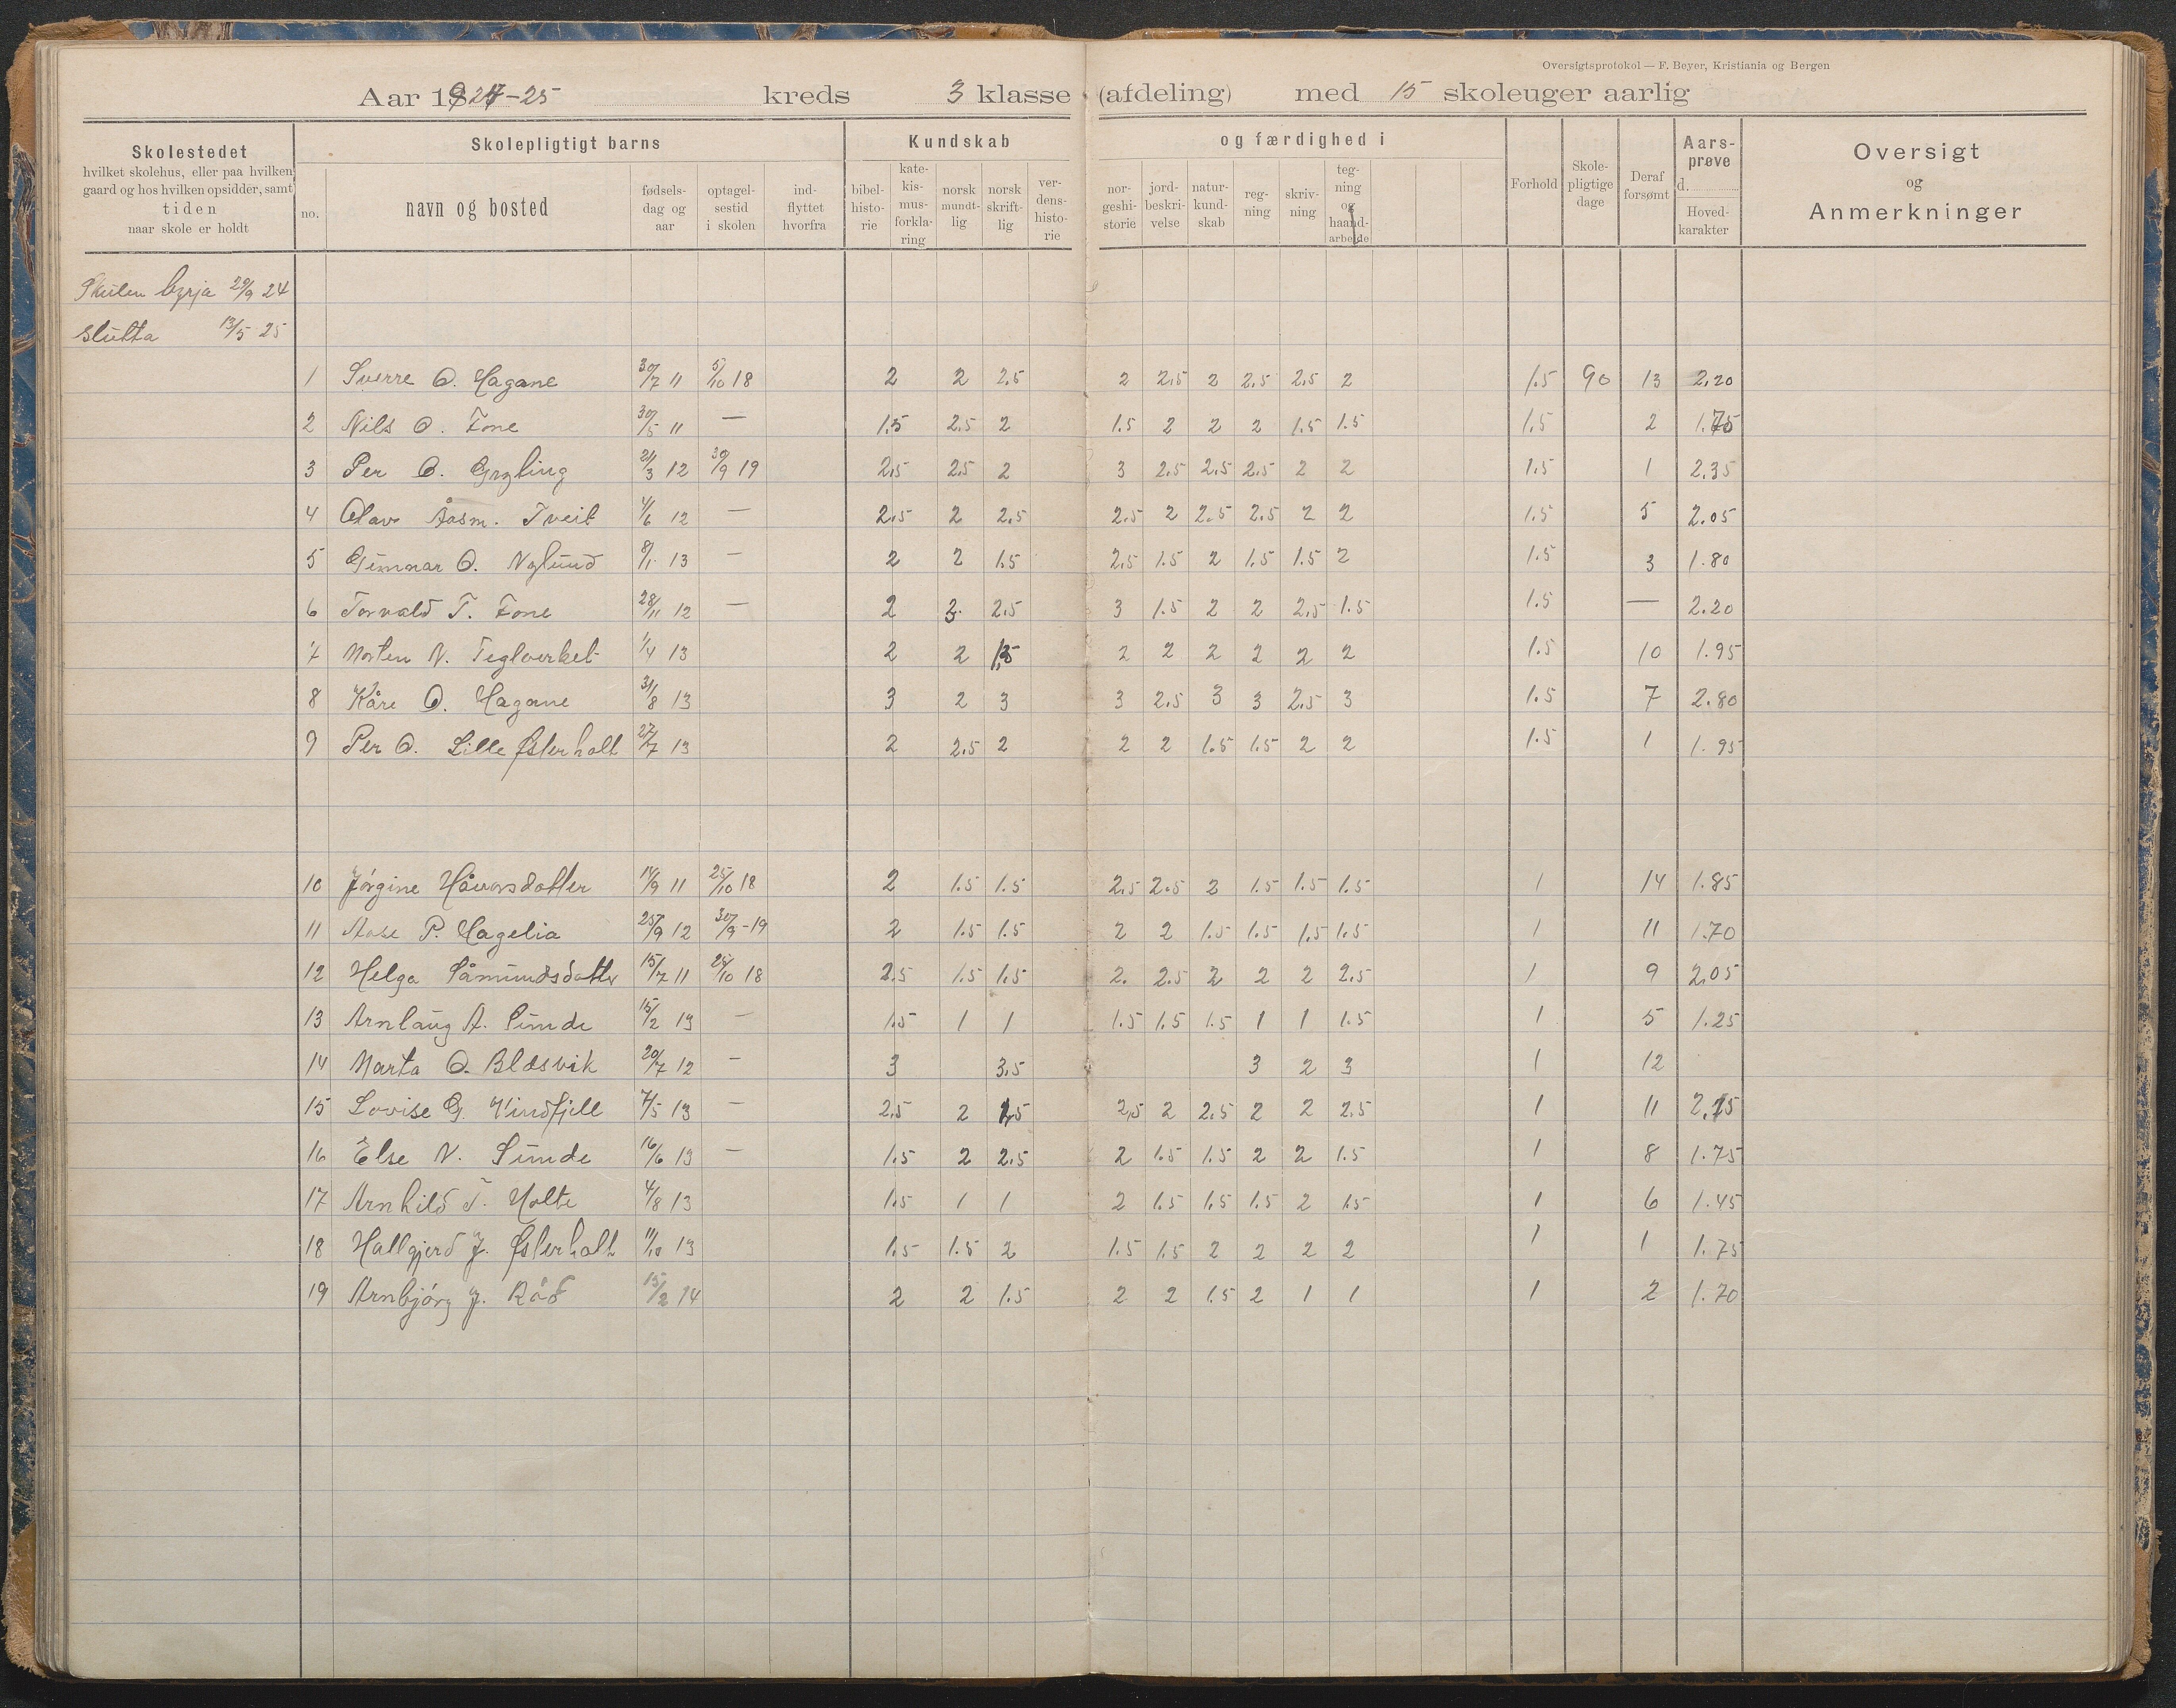 Oversigtsprotokol — F. Beyer, Kristiania og Bergen
Aar 1924-25 kreds 3 klasse (afdeling) med 15 skoleuger aarlig
Skolestedet
hvilket skolehus, eller paa hvilken
gaard og hos hvilken opsidder, samt
tiden
naar skole er holdt
Skolepligtigt barns
no.
navn og bosted
fødsels-
dag og
aar
optagel-
sestid
i skolen
ind-
flyttet
hvorfra
Kundskab
bibel-
histo-
rie
kate-
kis-
mus-
forkla-
ring
norsk
mundt-
lig
norsk
skrift-
lig
ver-
dens-
histo-
rie
og færdighed i
nor-
geshi-
storie
jord-
beskri-
velse
natur-
kund-
skab
reg-
ning
skriv-
ning
teg-
ning
og
haand-
arbeide
Forhold
Skole-
pligtige
dage
Deraf
forsømt
Aars-
prøve
d.
Hoved-
karakter
Oversigt
og
Anmerkninger
Skulen byrja 29/9 24
slutta 13/5 25
1 Sverre O. Hagane 30/7 11 5/10 18 2 2 2.5 2 2.5 2 2.5 2.5 2 1.5 90 13 2.20
2 Nils O. Tone 30/5 11 — 1.5 2.5 2 1.5 2 2 2 1.5 1.5 1.5 2 1.75
3 Per O. Gryting 21/3 12 30/9 19 2.5 2.5 2 3 2.5 2.5 2.5 2 2 1.5 1 2.35
4 Olav Åasm. Tveit 4/6 12 — 2.5 2 2.5 2.5 2 2.5 2.5 2 2 1.5 5 2.05
5 Gunnar O. Nylund 8/1 13 — 2 2 1.5 2.5 1.5 2 1.5 1.5 2 1.5 3 1.80
6 Torvald T. Tone 28/11 12 — 2 3 2.5 3 1.5 2 2 2.5 1.5 1.5 — 2.20
7 Morten N. Teglverket 1/4 13 2 2 1.5 2 2 2 2 2 2 1.5 10 1.95
8 Kåre O. Hagane 31/8 13 3 2 3 3 2.5 3 3 2.5 3 1.5 7 2.80
9 Per O. Lille Østerholt 27/7 13 2 2.5 2 2 2 1.5 1.5 2 2 1.5 1 1.95
10 Jørgine Håvorsdotter 14/9 11 25/10 18 2 1.5 1.5 2.5 2.5 2 1.5 1.5 1.5 1 14 1.85
11 Aase P. Hagelia 25/9 12 30/9-19 2 1.5 1.5 2 2 1.5 1.5 1.5 1.5 1 11 1.70
12 Helga Såmundsdotter 15/7 11 25/10 18 2.5 1.5 1.5 2. 2.5 2 2 2 2.5 1 9 2.05
13 Arnlaug A. Sunde 15/2 13 — 1.5 1 1 1.5 1.5 1.5 1 1 1.5 1 5 1.25
14 Marta O. Blæsvik 20/7 12 — 3 3.5 3 2 3 1 12
15 Lovise G. Vindfjell 7/5 13 — 2.5 2 1.5 2.5 2 2.5 2 2 2.5 1 11 2.15
16 Else N. Sunde 16/6 13 — 1.5 2 2.5 2 1.5 1.5 2 2 1.5 1 8 1.75
17 Arnhild T. Holte 4/8 13 1.5 1 1 2 1.5 1.5 1.5 2 1.5 1 6 1.45
18 Hallgjerd J. Østerholt 11/10 13 1.5 1.5 2 1.5 1.5 2 2 2 2 1 1 1.75
19 Arnbjørg J. Råd 15/2 14 2 2 1.5 2 2 1.5 2 1 1 1 2 1.70